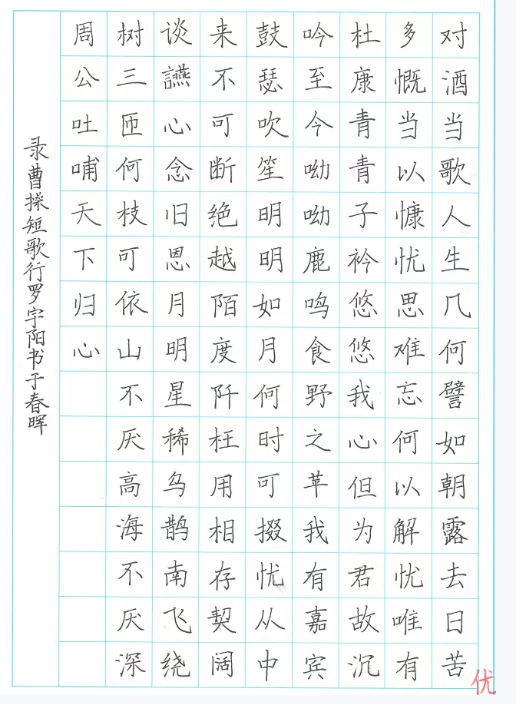 对酒当歌人生几何譬如朝露去日苦
多慨当以慷忧思难忘何以解忧唯有
杜康青青子衿悠悠我心但为君故沉
吟至今呦呦鹿鸣食野之苹我有嘉宾
鼓瑟吹笙明明如月何时可掇忧从中
来不可断绝越陌度阡枉用相存契阔
谈讌心念旧恩月明星稀乌鹊南飞绕
树三匝何枝可依山不厌高海不厌深
周公吐哺天下归心
录曹操短歌行罗宇阳书于春晖
优